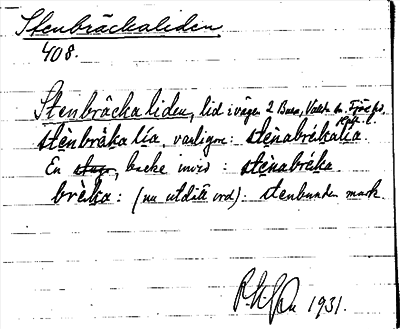 Stenbräckaliden
408.
Stenbräckaliden, lid i vägen 2 Buan, Valst
stènbràka lía, vanligare: stènabrékalía
En backe invid: stènabréka.
bréka: (nu utdött ord): stenbunden mark.
1931.